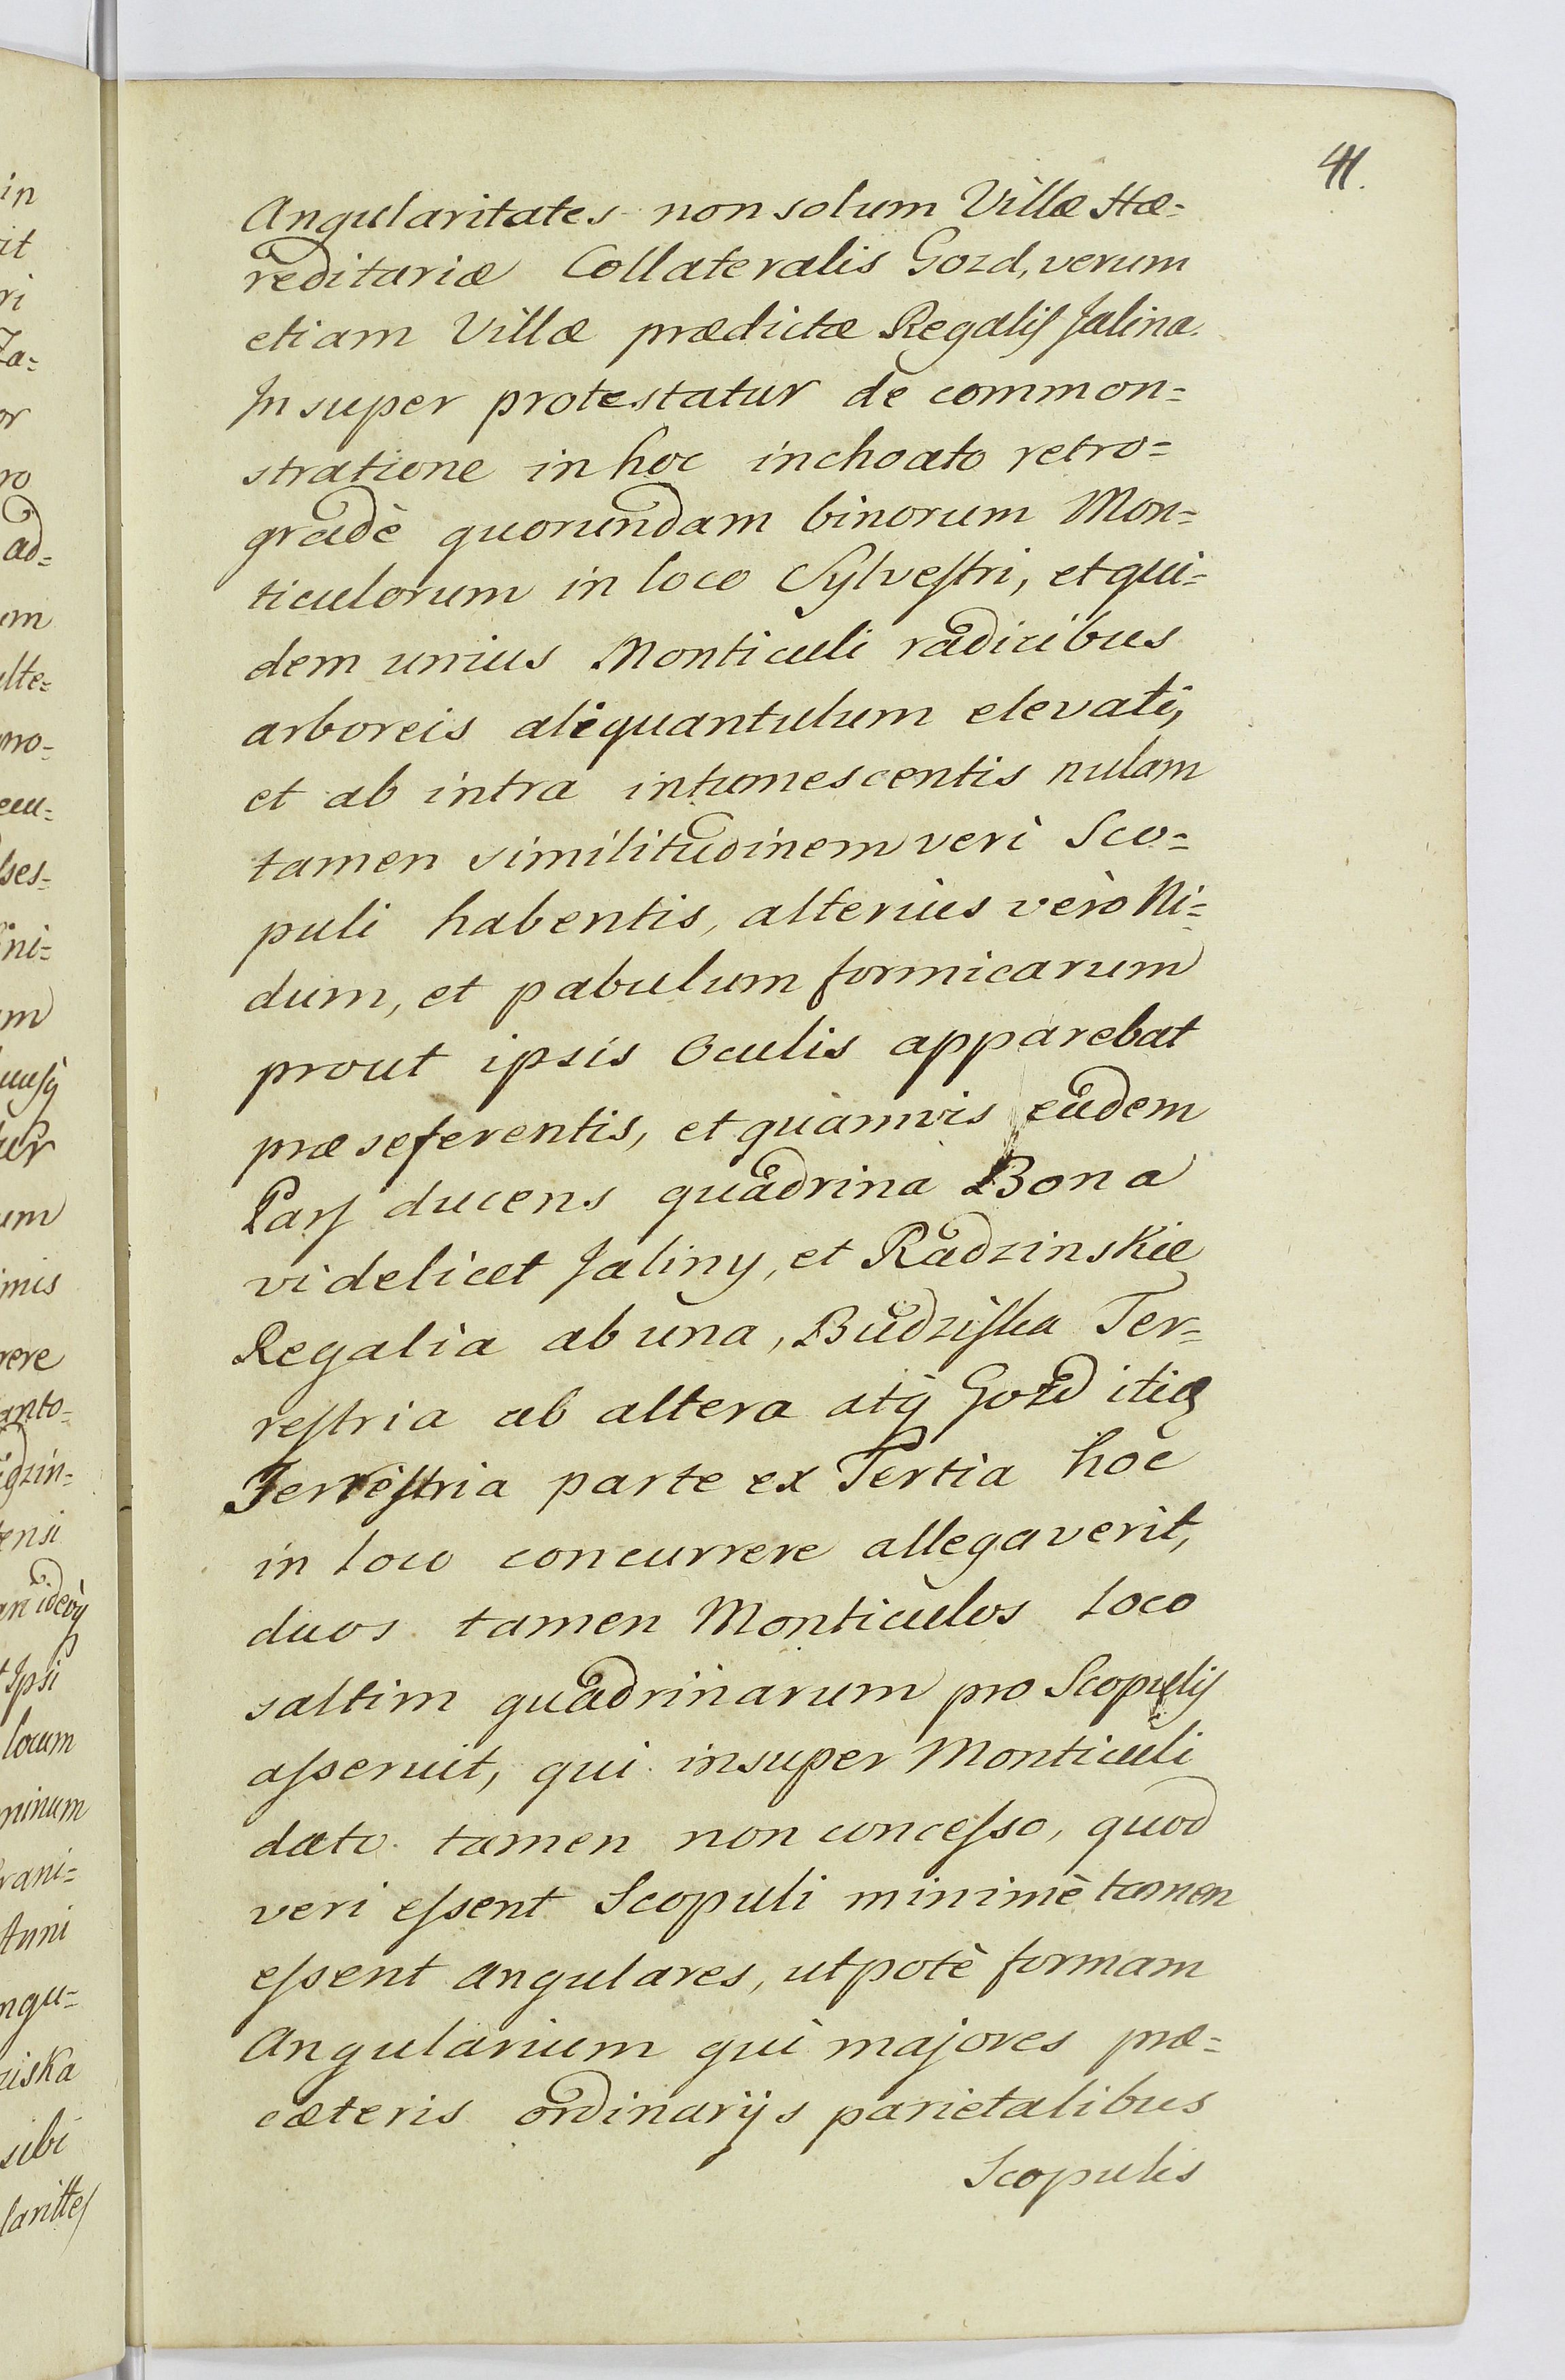 41.
Angularitates non solum Villæ Hæ=
reditariæ Collateralis Gozd, verum
etiam Villæ prædictæ Regalis Jalina.
Insuper protestatur de common=
stratione in hoc inchoato retro=
gradè quorundam binorum Mon=
ticulorum in loco Sylvestri, et qui=
dem unius Monticuli radicibus
arboreis aliquantulum elevati,
et ab intra intumescentis nulam
tamen similitudinem veri Sco=
puli habentis, alterius verò Ni=
dum, et pabulum formicarum
prout ipsis Oculis apparebat
præ seferentis, et quamvis eadem
Pars ducens quadrina Bona
videlicet Jaliny, et Radzinskie
Regalia ab una, Budziska Ter=
restria ab altera atq Gozd itiq
Terrestria parte ex Tertia hoc
in loco concurrere allegaverit,
duos tamen Monticulos loco
saltim quadrinarum pro Scopulis
asseruit, qui insuper Monticuli
dato tamen non concesso, quod
veri essent Scopuli minimè tamen
essent Angulares, utpotè formam
Angularium qui majores præ=
cæteris ordinarijs parietalibus
Scopulis